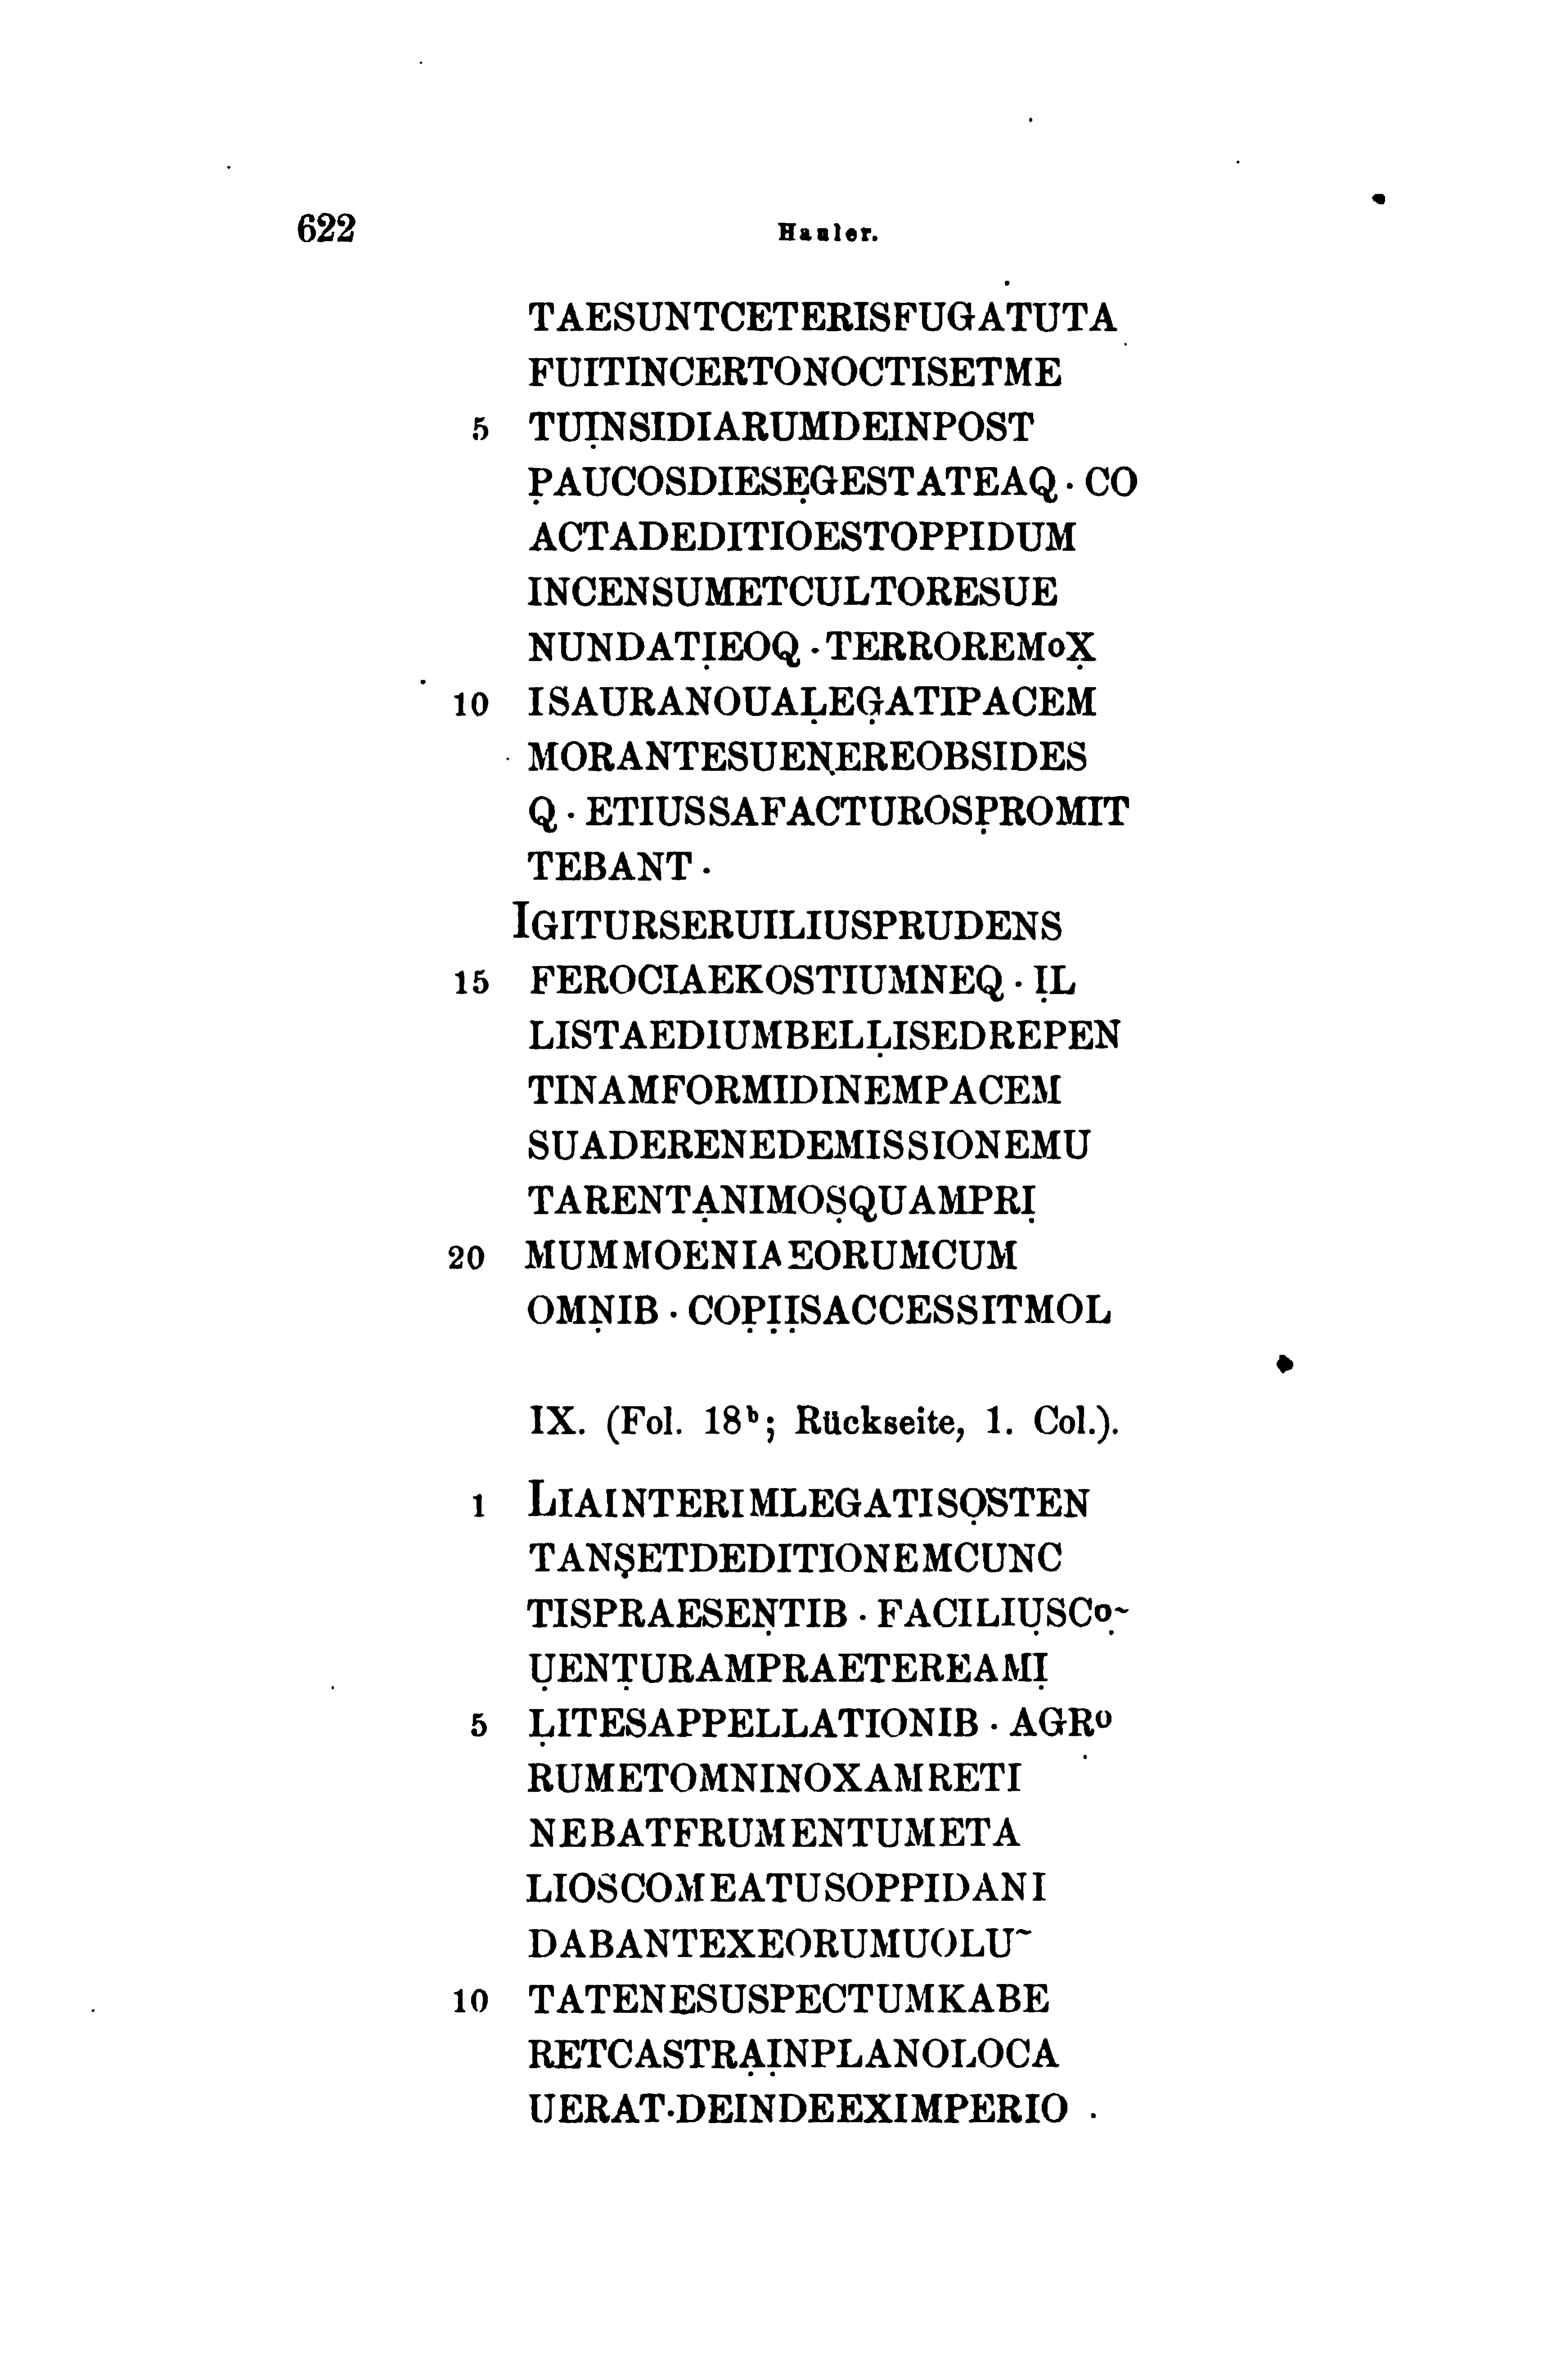 622 Hauler.
TAESUNTCETERISFUGATUTA
FUITINCERTONOCTISETME
5 TUỊNSIDIARUMDEINPOST
P̣AUCOSDIESẸGESTATEAQ · CO
ACTADEDITIOESTOPPIDUM
INCENSUMETCULTORESUE
NUNDATỊEOQ · TERROREMoX̣
10 ISAURANOUAḶEG̣ATIPACEM
MORANTESUEṆEREOBSIDES
Q · ETIUSSAFACTUROSP̣ROMIT
TEBANT ·
IGITURSERUILIUSPRUDENS
15 FEROCIAEKOSTIUMNEQ · ỊL
LISTAEDIUMBELḶISEDREPEN
TINAMFORMIDINEMPACEM
SUADERENEDEMISSIONEMU
TARENTẠNIMOṢQUAMPRỊ
20 MUMMOENIAEORUMCUM
OMṆIB · COP̣ỊỊSACCESSITMOL
IX. (Fol. 18ᵇ; Rückseite, 1. Col.).
1 LIAINTERIMLEGATISỌSTEN
TANṢETDEDITIONEMCUNC
TISPRAESEṆTIB · FACILIỤSCo~̣
ỤENṬURAMPRAETEREAMỊ
5 ḶITESAPPELLATIONIB · AGRo
RUMETOMNINOXAMRETI
NEBATFRUMENTUMETA
LIOSCOMEATUSOPPIDANI
DABANTEXEORUMUOLU~
10 TATENESUSPECTUMKABE
RETCASTRẠỊNPLANOLOCA
UERAT·DEINDEEXIMPERIO